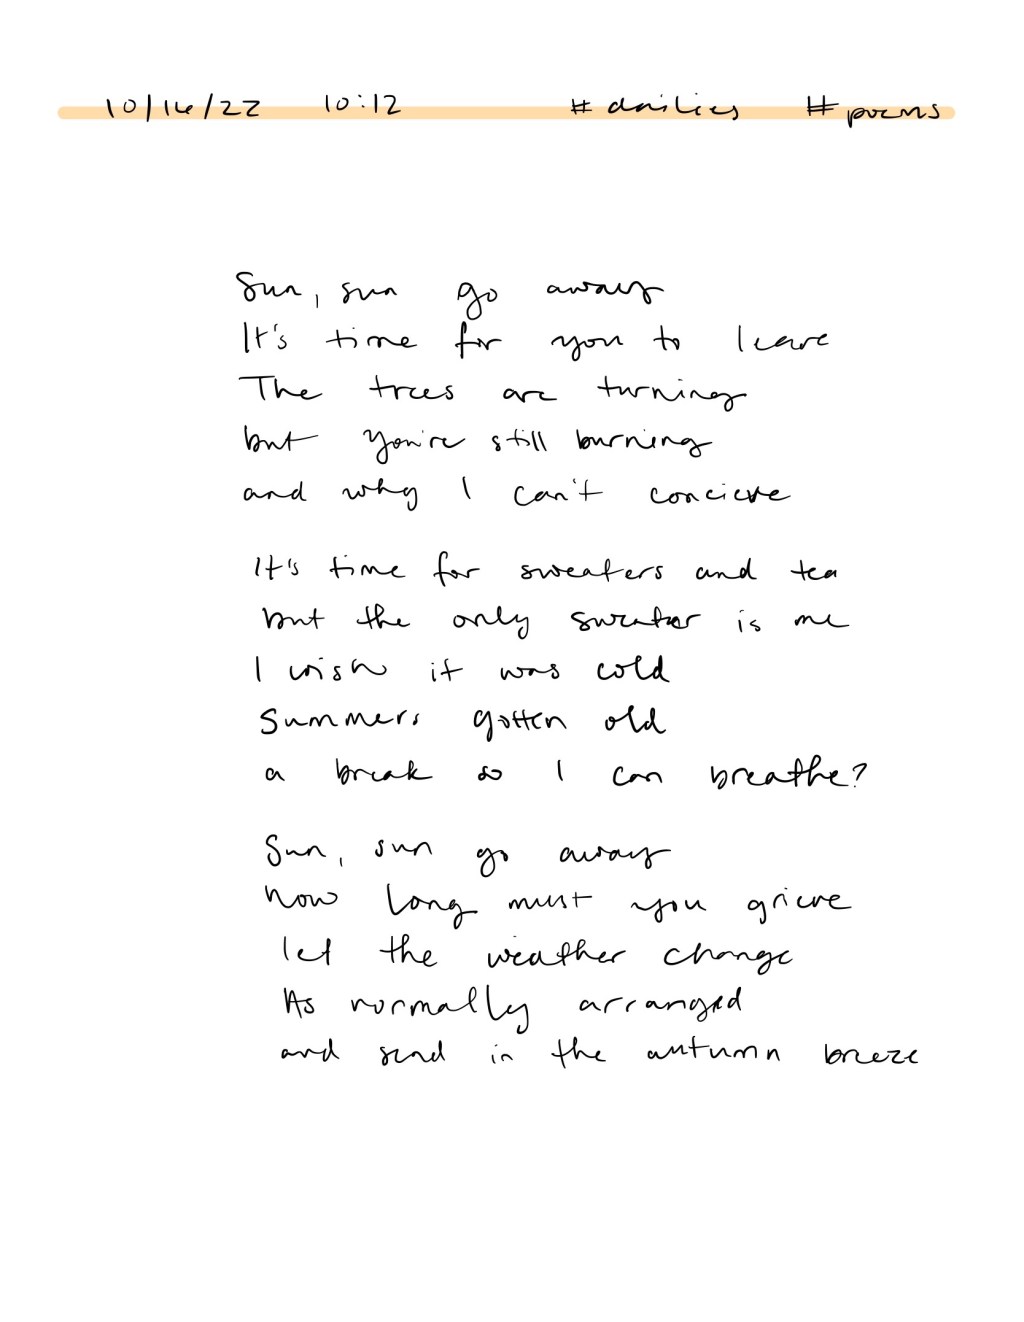 10/16/22 10:12 #dailies #poems
Sun, sun go away
It's time for you to leave
The trees are turning
but you're still burning
and why I can't concieve
It's time for sweaters and tea
but the only sweater is me
I wish it was cold
Summers gotten old
a break so I can breathe?
Sun, sun go away
how long must you grieve
let the weather change
As normally arranged
and send in the autumn breeze